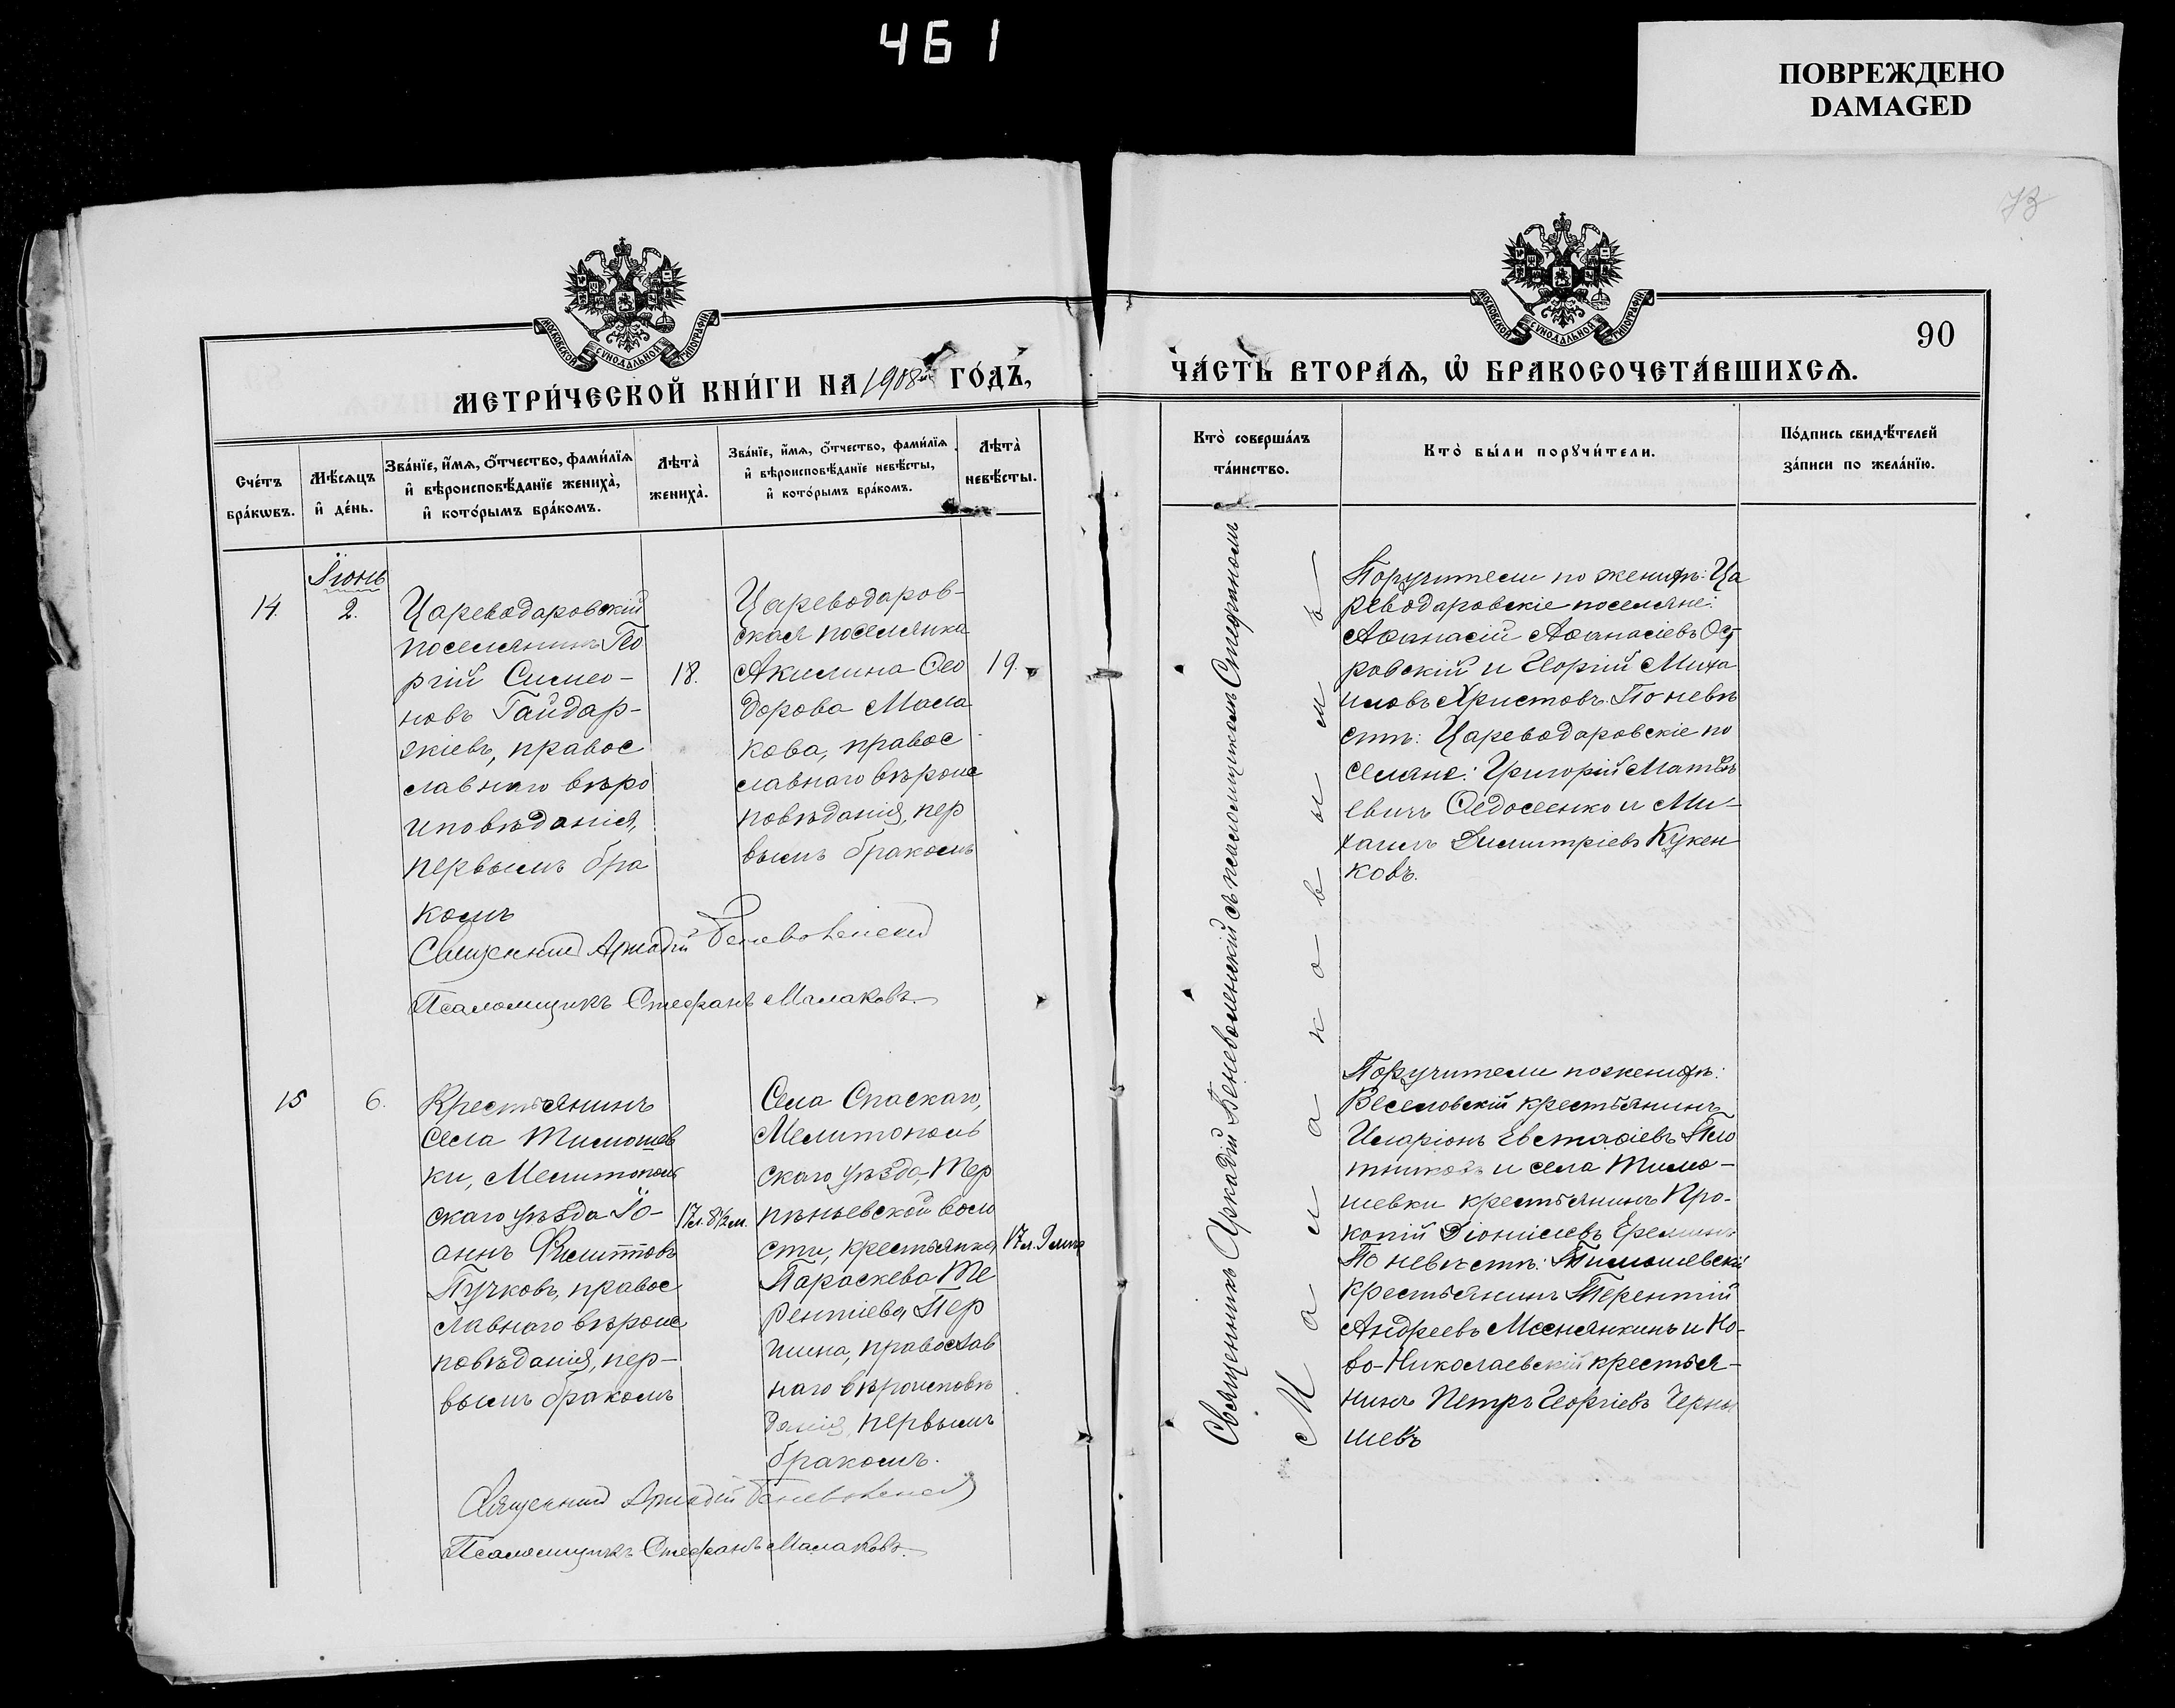 461
ПОВРЕЖДЕНО
DAMAGED
73
МОСКОВСКОЙ СѴНОДАЛЬНОЙ ТИПОГРАФІИ
МЕТРИ́ЧЕСКОЙ КНИ́ГИ НА 1908й ГО́ДЪ,
Сче́тъ
бра́кѡвъ.
Мѣ́сяцъ
и҆ де́нь.
Зва́нїе, и҆́мѧ, ѻ҆́тчество, фами́лїѧ
и҆ вѣроисповѣ́данїе жениха̀,
и҆ кото́рымъ бра́комъ.
Лѣта̀
жениха̀.
Зва́нїе, и҆́мѧ, ѻ҆́тчество, фами́лїѧ
и҆ вѣроисповѣ́данїе невѣ́сты,
и҆ кото́рымъ бра́комъ.
Лѣта̀
невѣ́сты.
14.
Іюнь
2.
Цареводаровскій
поселянинъ Гео
ргій Симео-
новъ Гайдар-
жіевъ, правос
лавнаго вѣро
иповѣданія,
первымъ бра
комъ
18.
Цареводаров-
ская поселянка
Акилина Ѳео
дорова Мала
кова, правос
лавнаго вѣроис
повѣданія, пер
вымъ бракомъ
19.
Священникъ Аркадій Беневоленскій
Псаломщикъ Стефанъ Малаковъ.
15
6.
Крестьянинъ
села Тимошев
ки, Мелитополь
скаго уѣзда Іо-
аннъ Филипповъ
Пучковъ, правос
лавнаго вѣроис
повѣданія, пер-
вымъ бракомъ
17 л. 8½ м.
Села Спаскаго,
Мелитополь
скаго уѣзда, Тер
пѣньевской воло
сти, крестьянка
Параскева Те
рентіева Пер
шина, православ
наго вѣроисповѣ
данія, первымъ
бракомъ.
17 л.
Священникъ Аркадій Беневоленскій
Псаломщикъ Стефанъ Малаковъ.
МОСКОВСКОЙ СѴНОДАЛЬНОЙ ТИПОГРАФІИ
90
ЧА́СТЬ ВТОРА́Ѧ, Ѡ҆ БРАКОСОЧЕТА́ВШИХСѦ.
Кто̀ соверша́лъ
та́инство.
Кто̀ бы́ли порꙋчи́тели.
По́дпись свидѣ́телей
за́писи по жела́нїю.
Священникъ Аркадій Беневоленскій съ псаломщикомъ Стефаномъ
Малаковымъ
Поручители по женихѣ: Ца
реводаровскіе поселяне:
Аѳанасій Аѳанасіевъ Ост
ровскій и Георгій Миха
иловъ Христовъ. По невѣ
стѣ: Цареводаровскіе по
селяне: Григорій Матѳѣ
евичъ Ѳедосеенко и Ми-
хаилъ Димитріевъ Кукен
ковъ.
Поручители по женихѣ:
Веселовскій крестьянинъ
Иларіонъ Евстаѳіевъ Пло
тниковъ и села Тимо-
шевки крестьянинъ Про-
копій Діонисіевъ Ереминъ
По невѣстѣ: Тимошевскій
крестьянинъ Терентій
Андреевъ и Но-
во-Николаевскій крестья-
нинъ Петръ Георгіевъ Черны
шевъ